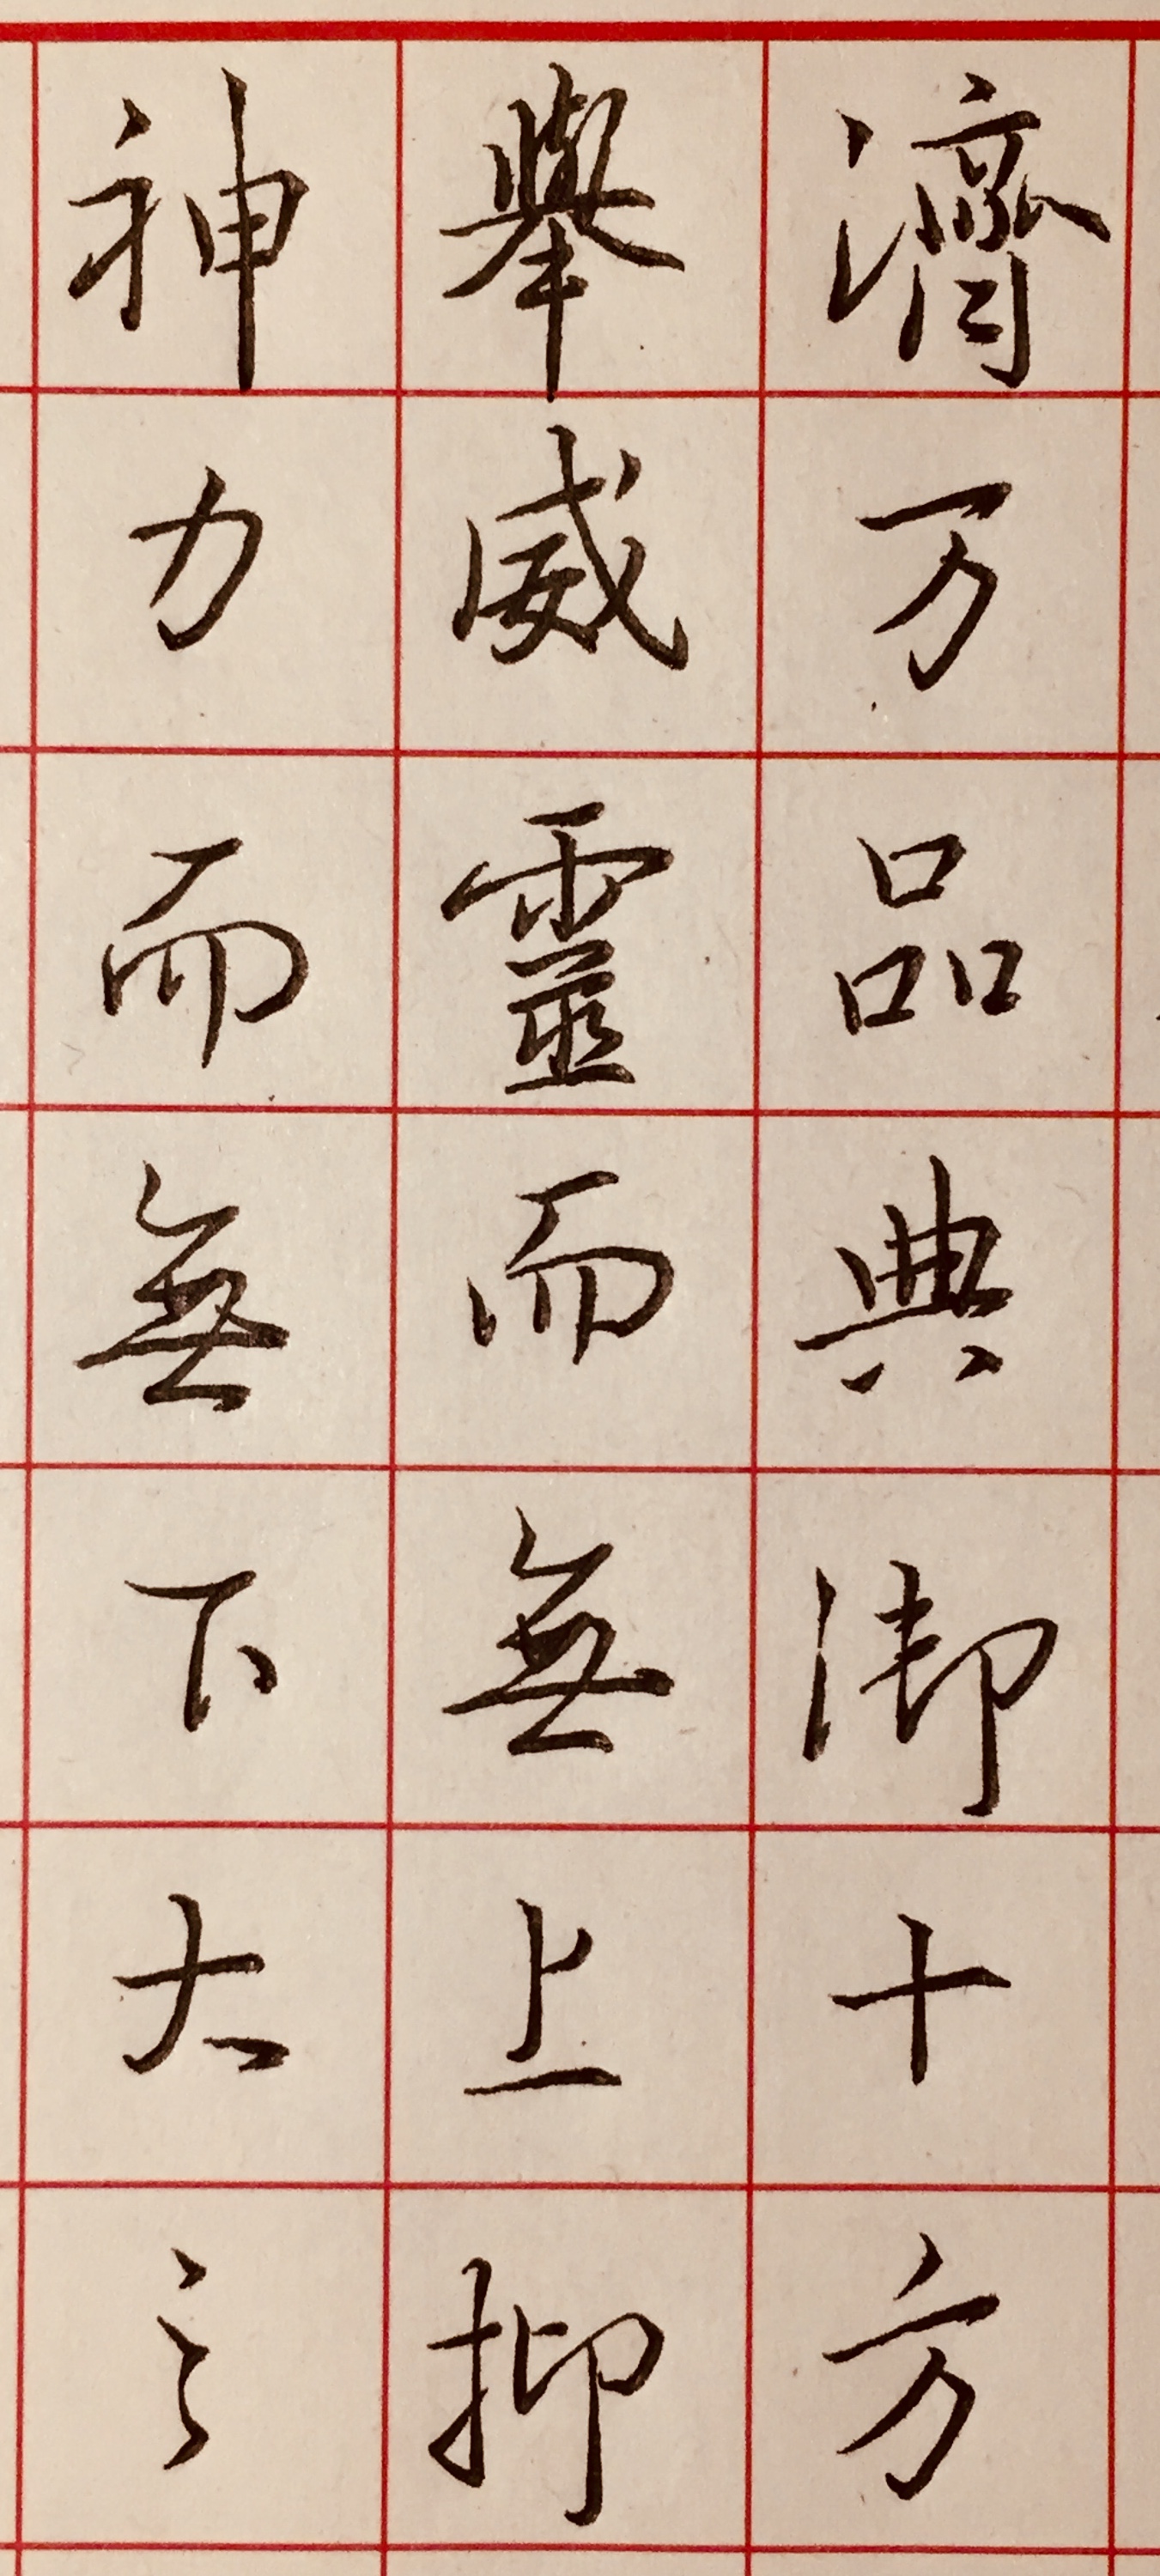 濟万品典御十方
舉威靈而無上抑
神力而無下大之